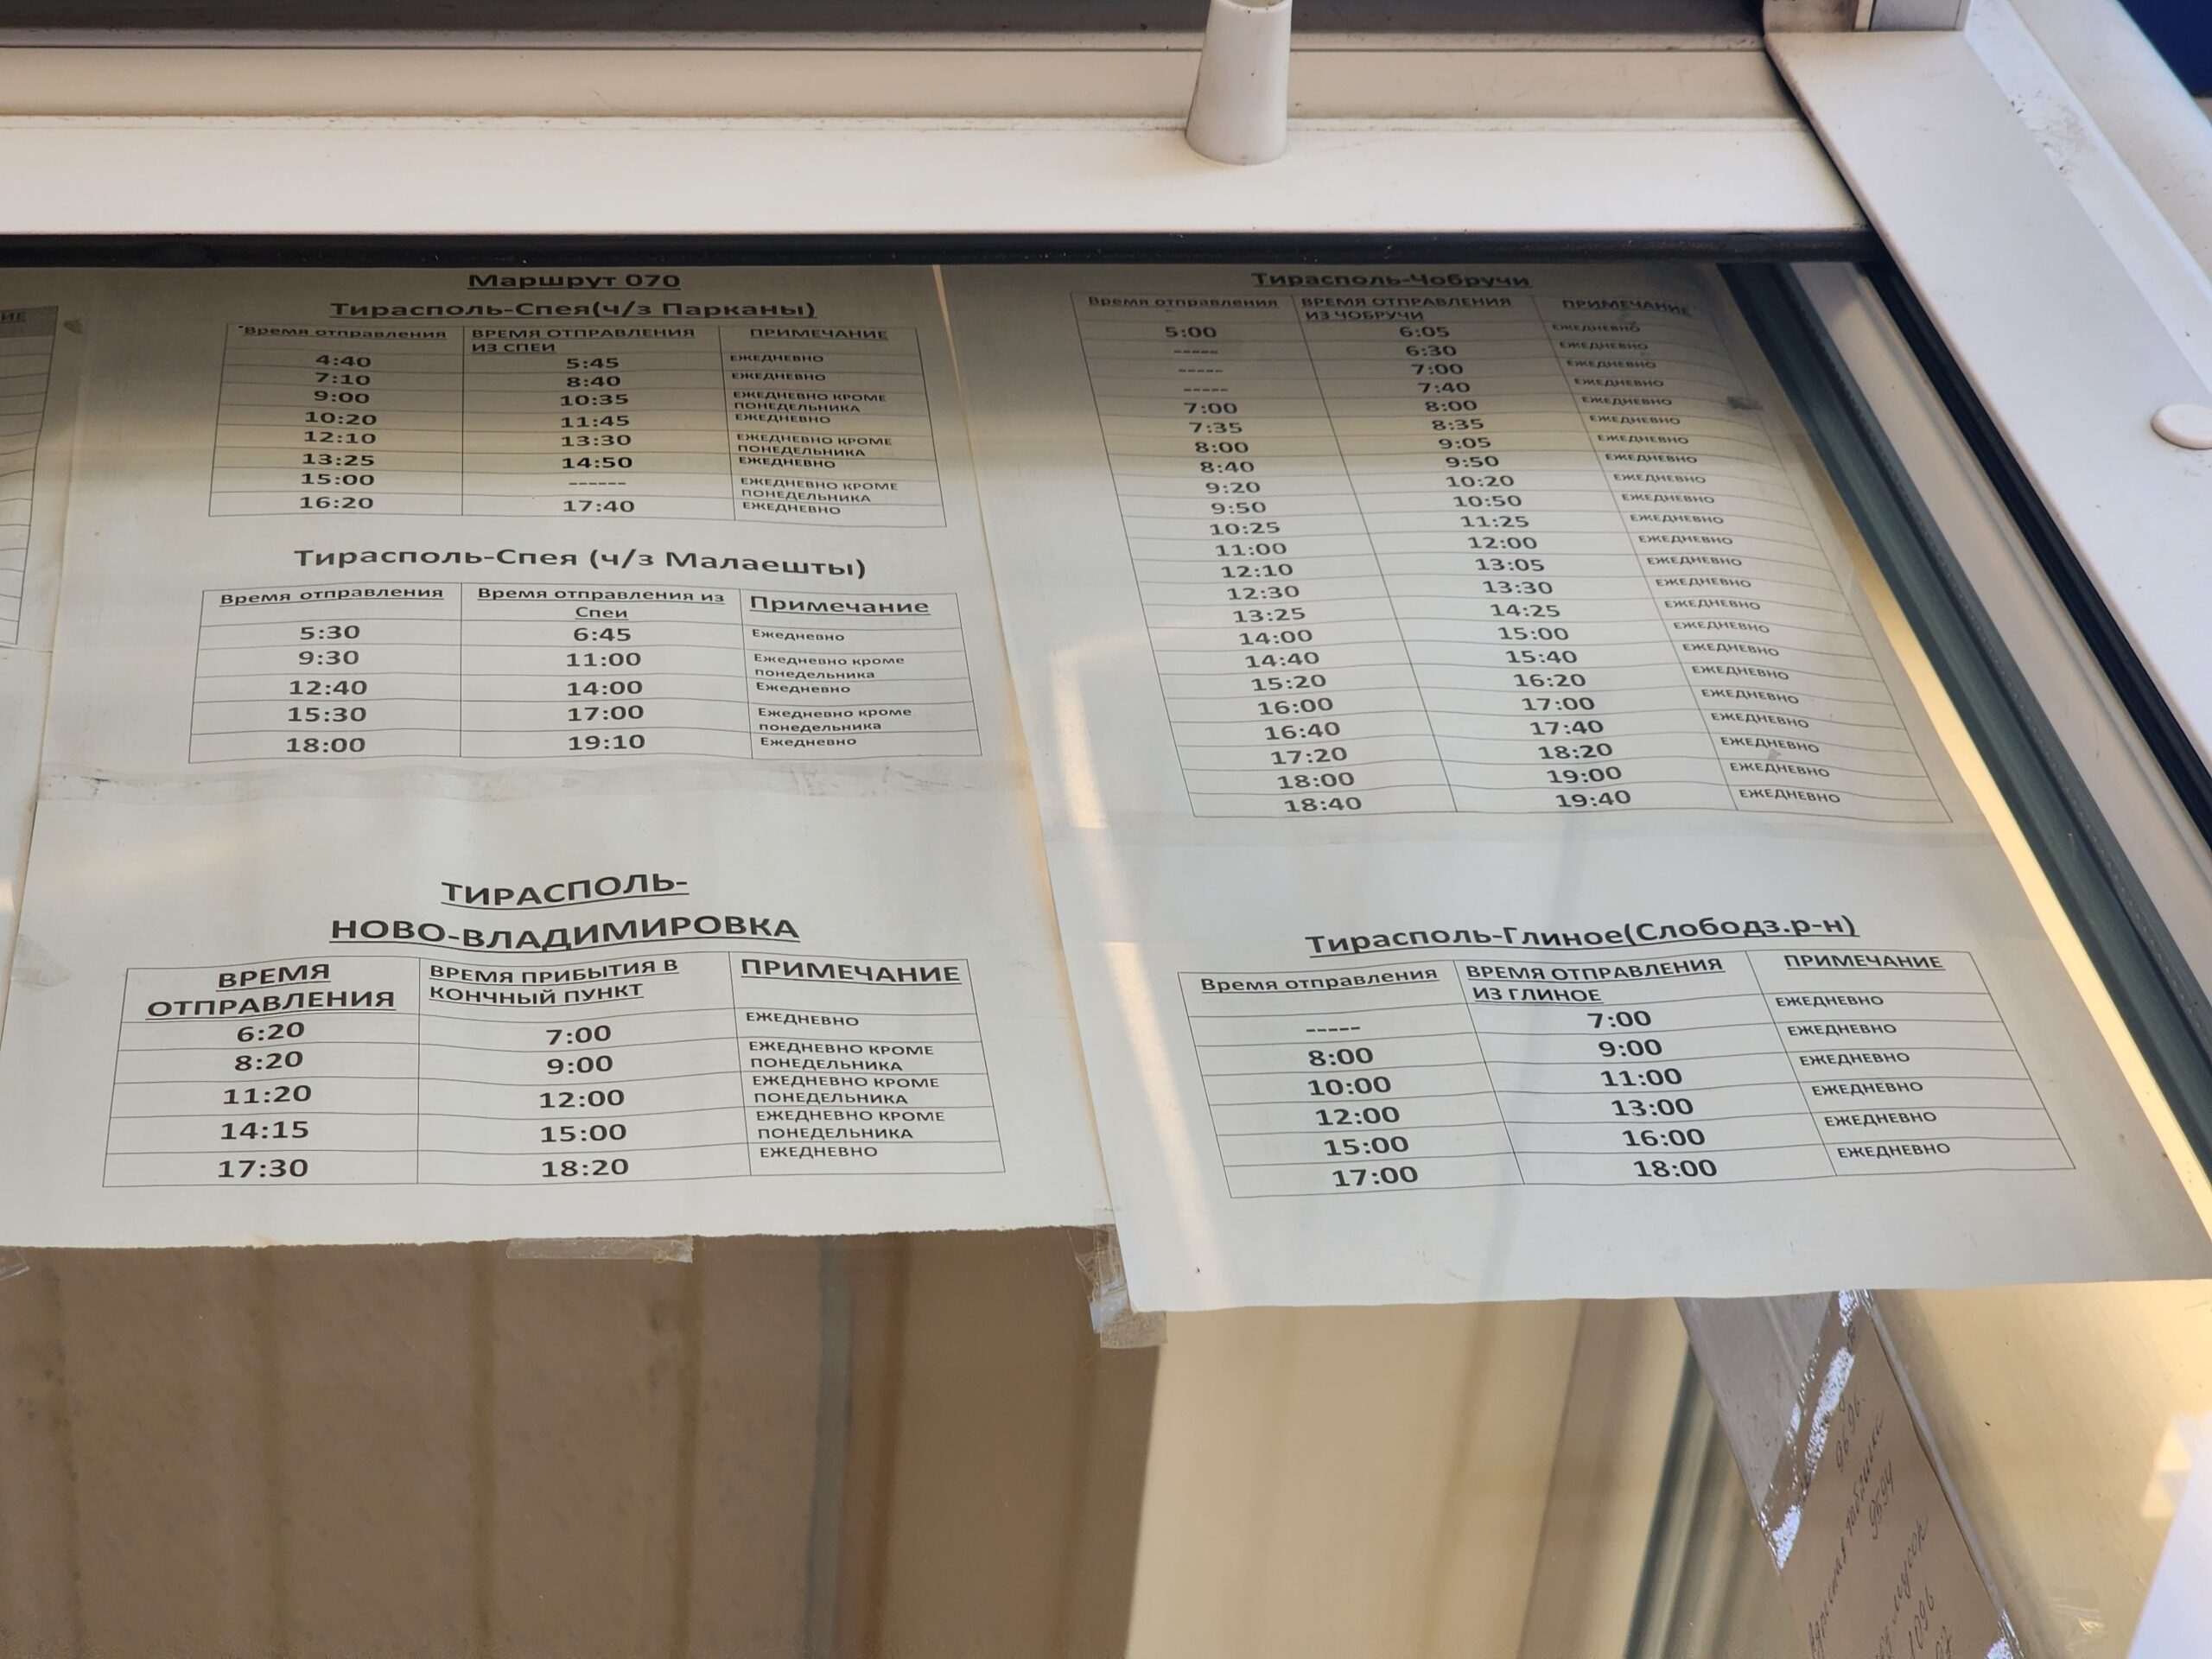 ИЕ
Маршрут 070
Тирасполь-Спея(ч/з Парканы)
Время отправления ВРЕМЯ ОТПРАВЛЕНИЯ ИЗ СПЕИ ПРИМЕЧАНИЕ
4:40 5:45 ЕЖЕДНЕВНО
7:10 8:40 ЕЖЕДНЕВНО
9:00 10:35 ЕЖЕДНЕВНО КРОМЕ ПОНЕДЕЛЬНИКА
10:20 11:45 ЕЖЕДНЕВНО
12:10 13:30 ЕЖЕДНЕВНО КРОМЕ ПОНЕДЕЛЬНИКА
13:25 14:50 ЕЖЕДНЕВНО
15:00 ------ ЕЖЕДНЕВНО КРОМЕ ПОНЕДЕЛЬНИКА
16:20 17:40 ЕЖЕДНЕВНО
Тирасполь-Спея (ч/з Малаешты)
Время отправления Время отправления из Спеи Примечание
5:30 6:45 Ежедневно
9:30 11:00 Ежедневно кроме понедельника
12:40 14:00 Ежедневно
15:30 17:00 Ежедневно кроме понедельника
18:00 19:10 Ежедневно
ТИРАСПОЛЬ-
НОВО-ВЛАДИМИРОВКА
ВРЕМЯ ОТПРАВЛЕНИЯ ВРЕМЯ ПРИБЫТИЯ В КОНЧНЫЙ ПУНКТ ПРИМЕЧАНИЕ
6:20 7:00 ЕЖЕДНЕВНО
8:20 9:00 ЕЖЕДНЕВНО КРОМЕ ПОНЕДЕЛЬНИКА
11:20 12:00 ЕЖЕДНЕВНО КРОМЕ ПОНЕДЕЛЬНИКА
14:15 15:00 ЕЖЕДНЕВНО КРОМЕ ПОНЕДЕЛЬНИКА
17:30 18:20 ЕЖЕДНЕВНО
Тирасполь-Чобручи
Время отправления ВРЕМЯ ОТПРАВЛЕНИЯ ИЗ ЧОБРУЧИ ПРИМЕЧАНИЕ
5:00 6:05 ЕЖЕДНЕВНО
----- 6:30 ЕЖЕДНЕВНО
----- 7:00 ЕЖЕДНЕВНО
----- 7:40 ЕЖЕДНЕВНО
7:00 8:00 ЕЖЕДНЕВНО
7:35 8:35 ЕЖЕДНЕВНО
8:00 9:05 ЕЖЕДНЕВНО
8:40 9:50 ЕЖЕДНЕВНО
9:20 10:20 ЕЖЕДНЕВНО
9:50 10:50 ЕЖЕДНЕВНО
10:25 11:25 ЕЖЕДНЕВНО
11:00 12:00 ЕЖЕДНЕВНО
12:10 13:05 ЕЖЕДНЕВНО
12:30 13:30 ЕЖЕДНЕВНО
13:25 14:25 ЕЖЕДНЕВНО
14:00 15:00 ЕЖЕДНЕВНО
14:40 15:40 ЕЖЕДНЕВНО
15:20 16:20 ЕЖЕДНЕВНО
16:00 17:00 ЕЖЕДНЕВНО
16:40 17:40 ЕЖЕДНЕВНО
17:20 18:20 ЕЖЕДНЕВНО
18:00 19:00 ЕЖЕДНЕВНО
18:40 19:40 ЕЖЕДНЕВНО
Тирасполь-Глиное(Слободз.р-н)
Время отправления ВРЕМЯ ОТПРАВЛЕНИЯ ИЗ ГЛИНОЕ ПРИМЕЧАНИЕ
----- 7:00 ЕЖЕДНЕВНО
8:00 9:00 ЕЖЕДНЕВНО
10:00 11:00 ЕЖЕДНЕВНО
12:00 13:00 ЕЖЕДНЕВНО
15:00 16:00 ЕЖЕДНЕВНО
17:00 18:00 ЕЖЕДНЕВНО
9696
9694
1096